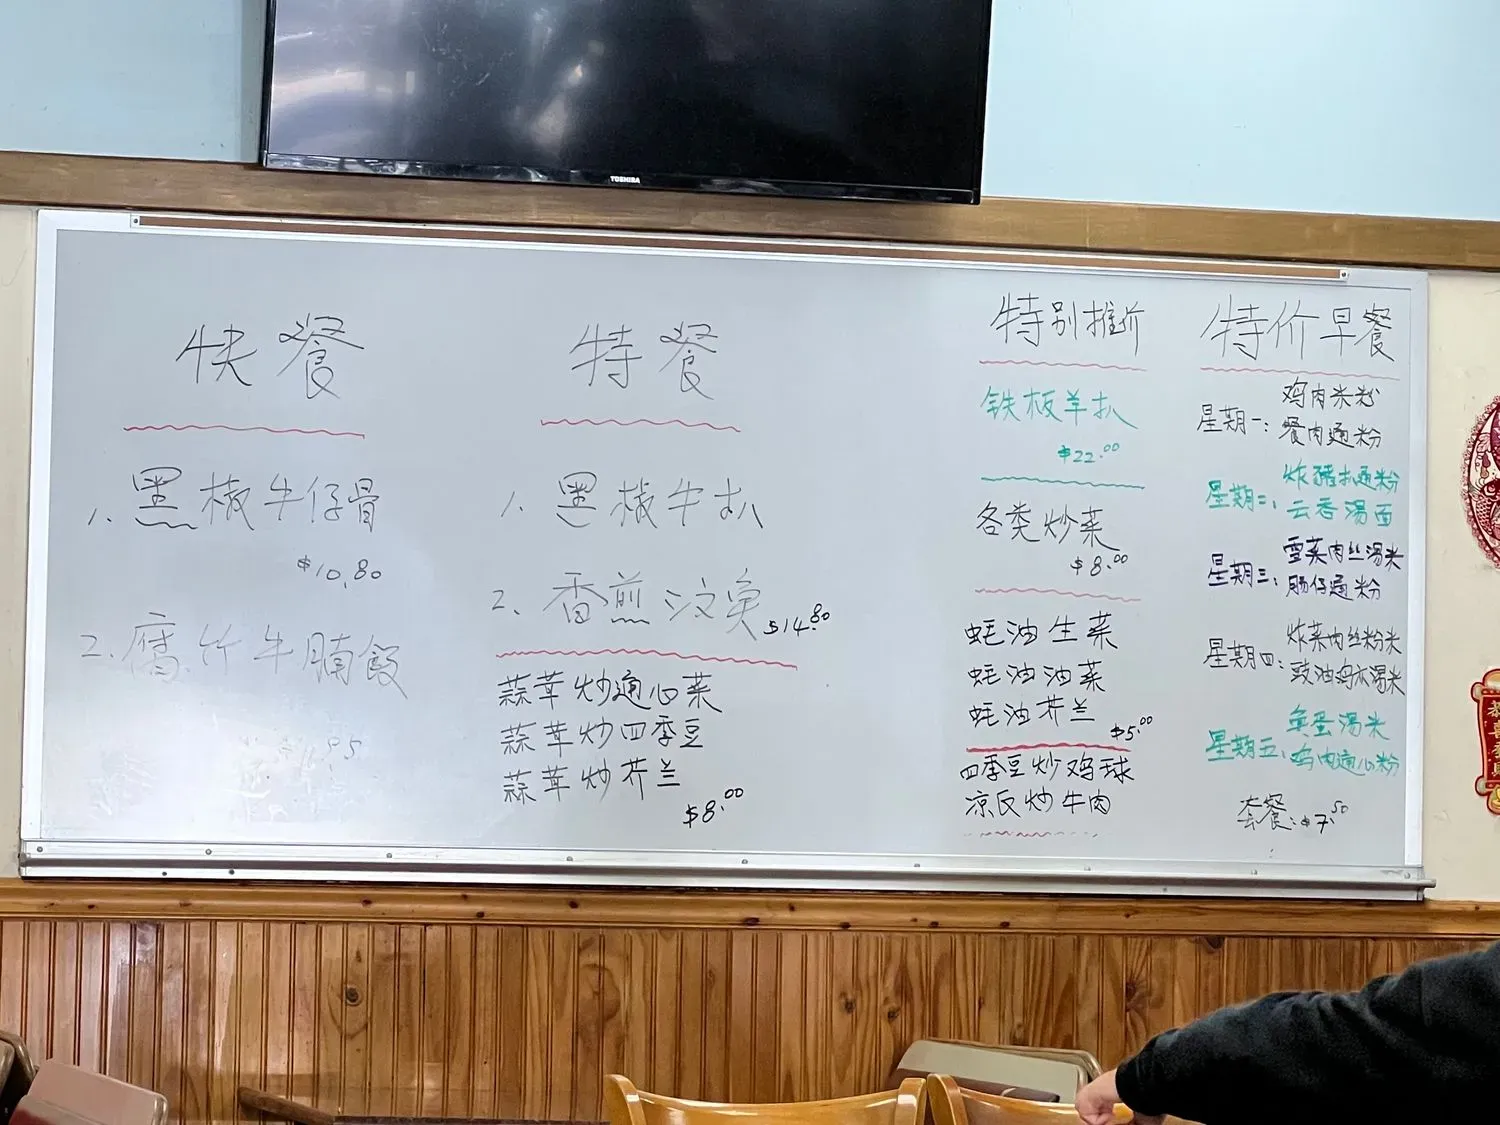 TOSHIBA
快餐
1. 黑椒牛仔骨
$10.80
2. 腐竹牛腩饭
特餐
1. 黑椒牛扒
2. 香煎汶鱼
$14.80
蒜茸炒通心菜
蒜茸炒四季豆
蒜茸炒芥兰
$8.00
特别推介
铁板羊扒
$22.00
各类炒菜
$8.00
蚝油生菜
蚝油油菜
蚝油芥兰
$5.00
四季豆炒鸡球
凉瓜炒牛肉
特价早餐
星期一: 鸡肉米粉
餐肉通粉
星期二: 炸猪扒通粉
云吞汤面
星期三: 雪菜肉丝汤米
肠仔通粉
星期四: 炸菜肉丝粉米
豉油鸡汤米
星期五: 鱼蛋汤米
鸡肉通心粉
套餐: $7.50